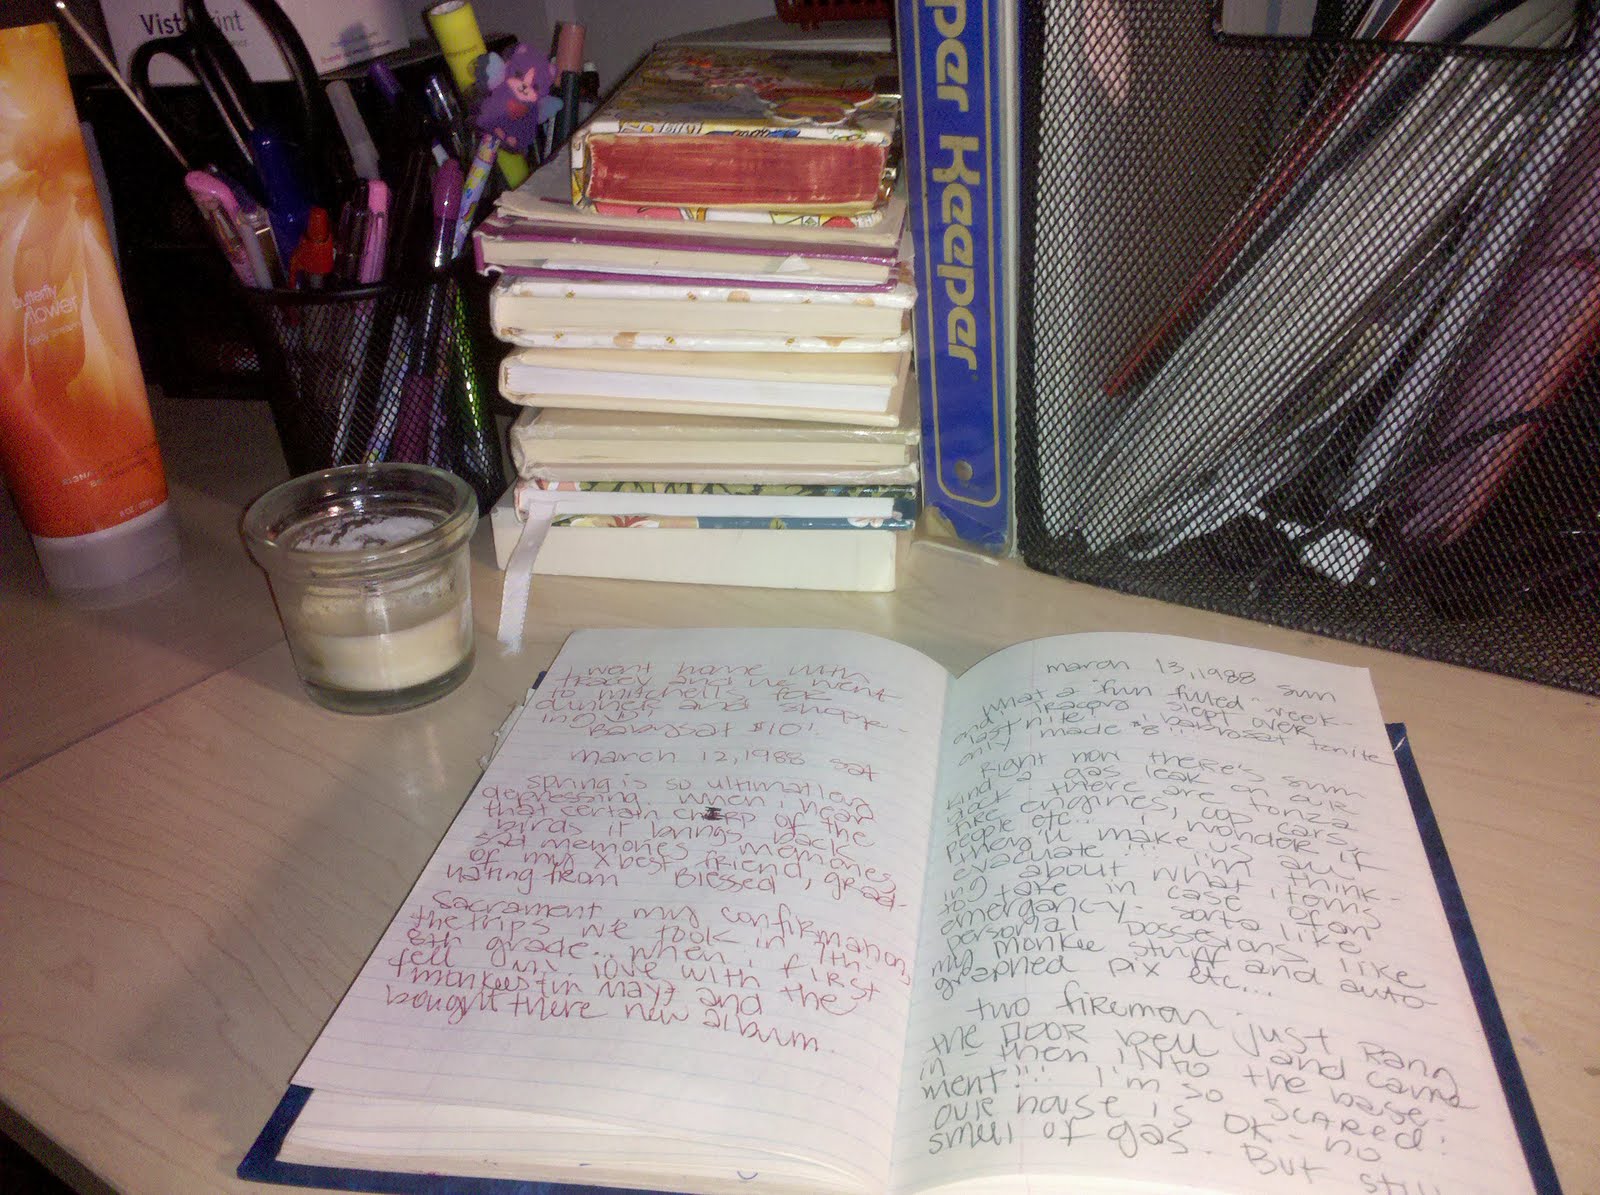 Vistaprint
butterfly
flower
per Keeper
I went home with
tracey and we went
to mitchells for
dinner and shopp-
ing.
Babysat $10!
march 12, 1988 sat
spring is so ultimatlery
depressing. when i hear
that certain chirp of the
birds it brings back
sad memories. memories
of my x best friend, grad-
uating from Blessed
Sacrament, my confirmation,
the trips we took in 7th-
8th grade... when i first
fell in love with the
monkees (in may) and
bought there new album.
march 13, 1988 sun
What a fun filled week-
end! Tracey slept over
last nite! I babysat tonite
only made $8!!
Right now there's sum
kind a gas leak on our
block there are tonza
fire engines, cop cars,
people etc... i wonder if
they'll make us all
evacuate!!! i'm think-
ing about what items
to take in case of an
emergancy- sorta like
personal possesions like
my monkee stuff and auto-
graphed pix etc...
two firemon just rang
the DOOR bell and came
in - then into the base-
ment!!! I'm so SCARED!
our house is OK - no
smell of gas. But still